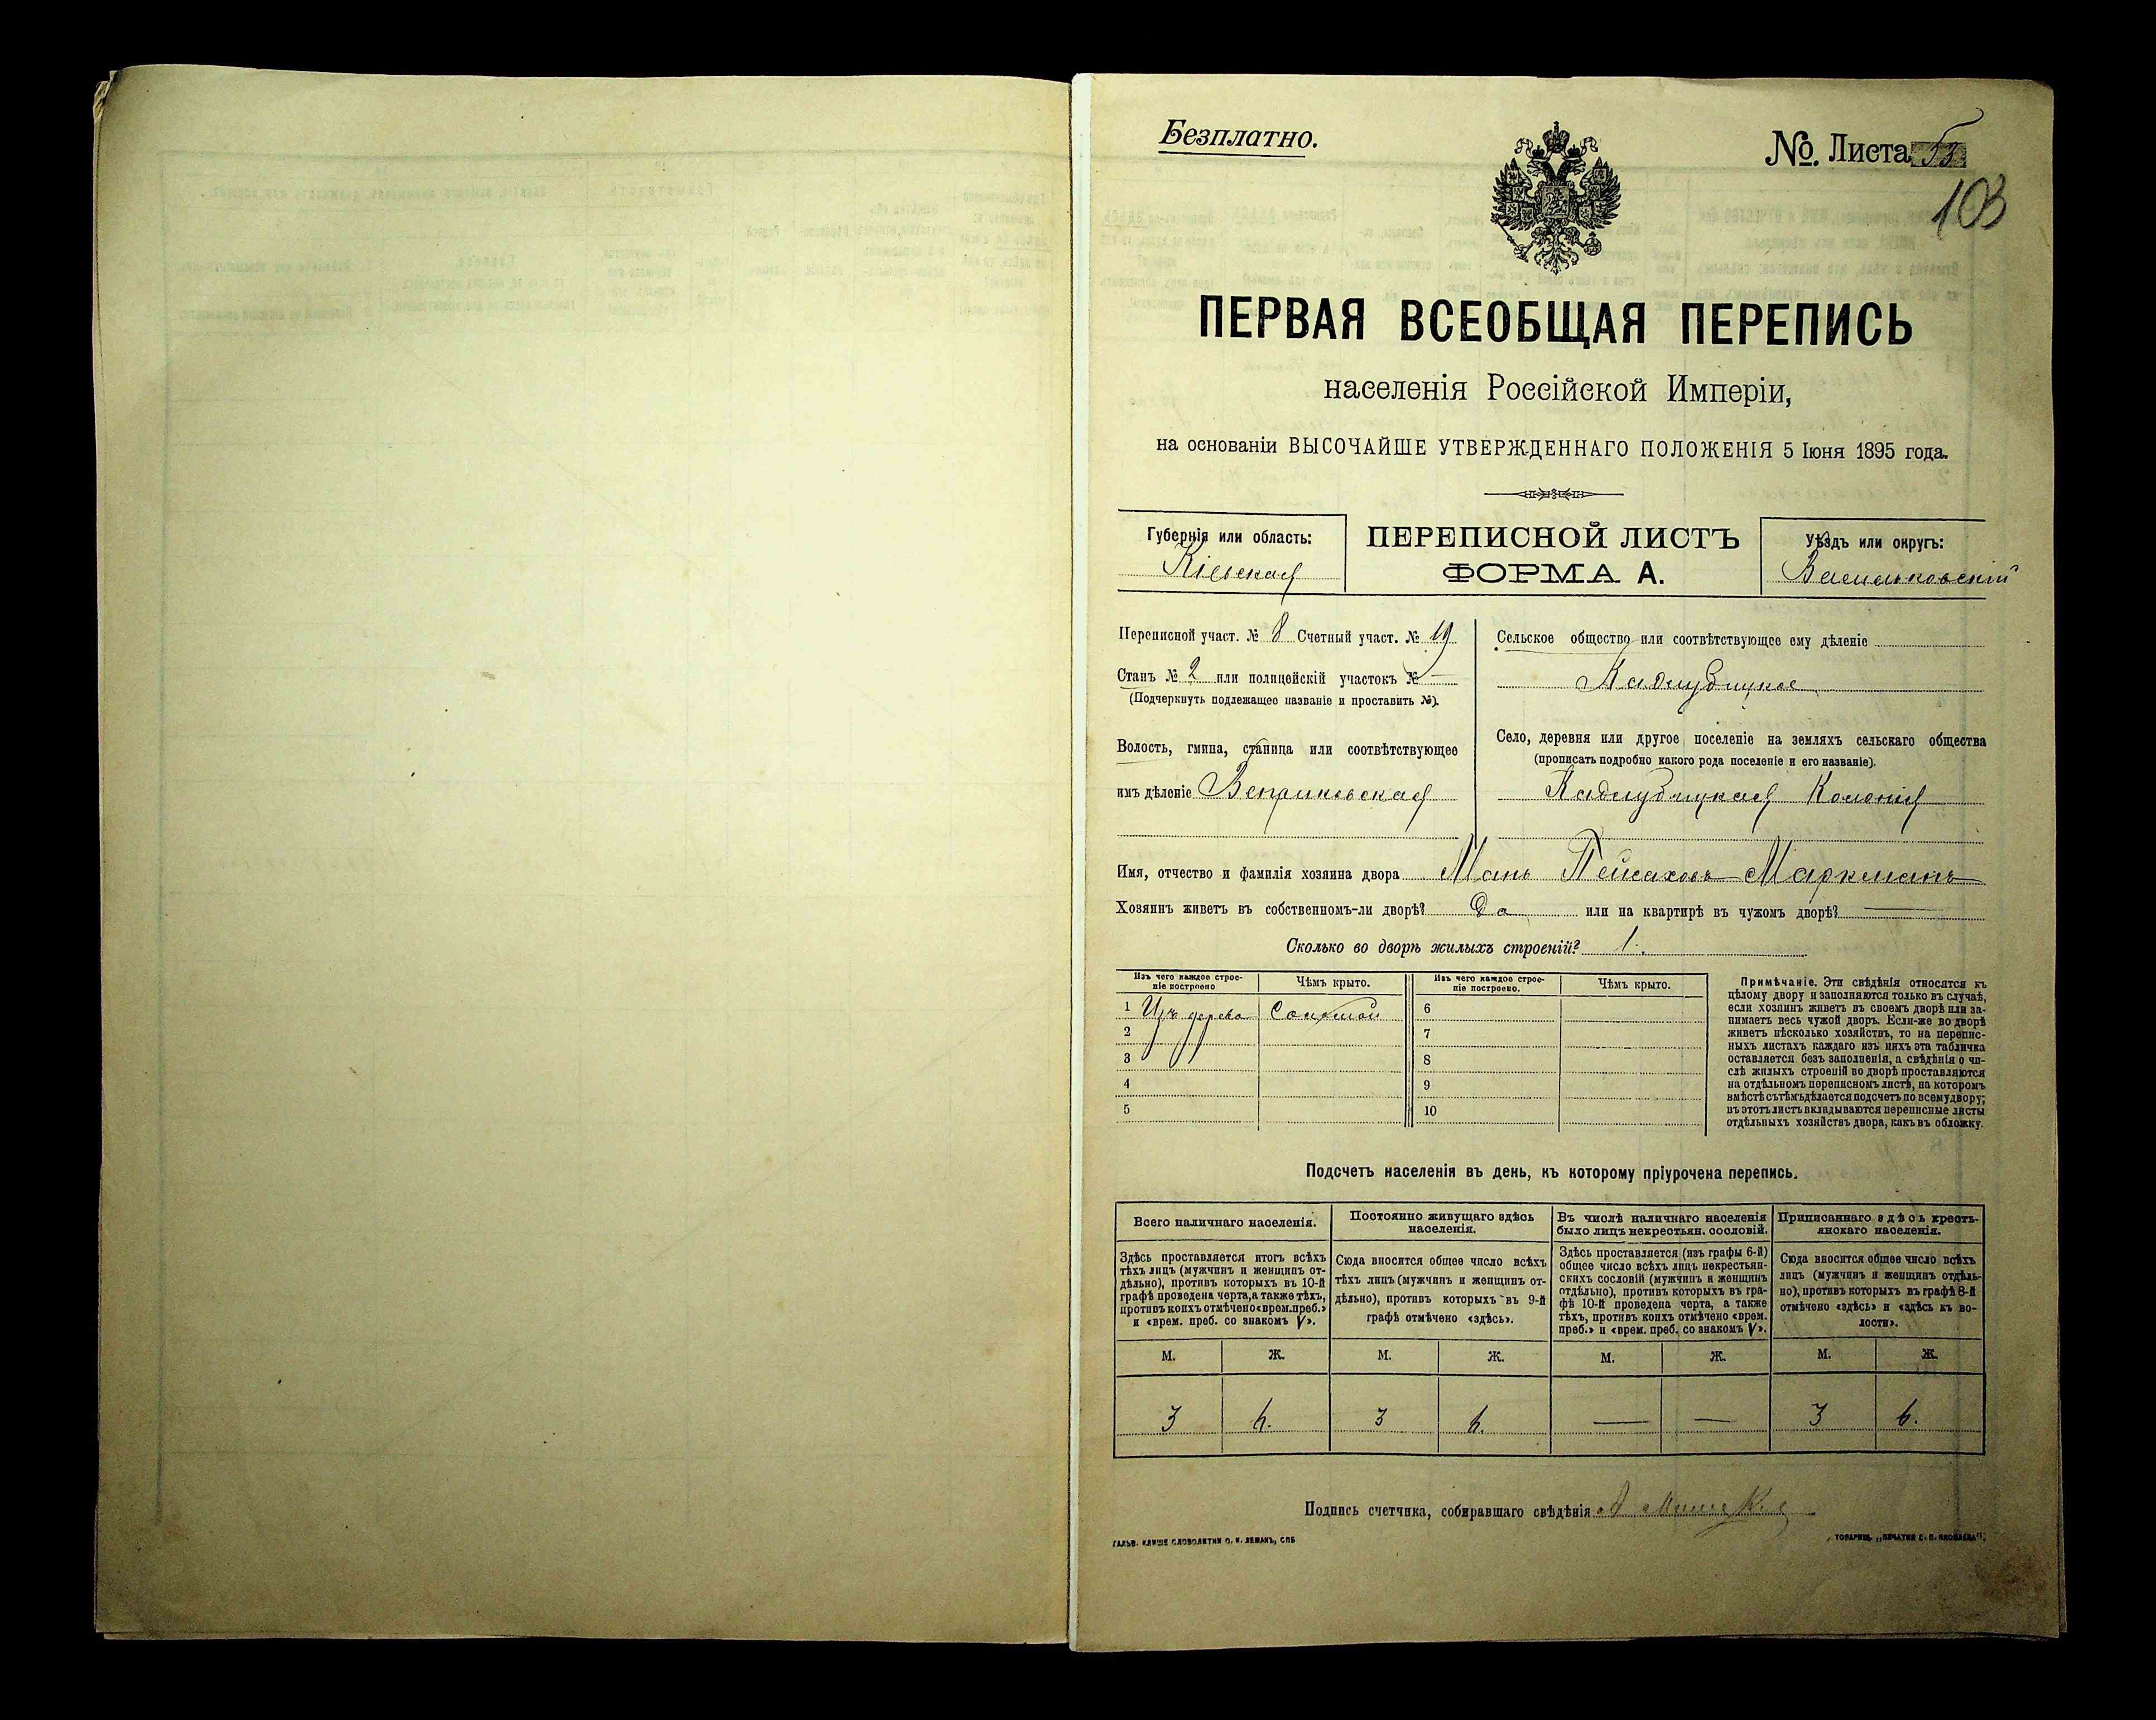 Безплатно.
№. Листа 53
103
ПЕРВАЯ ВСЕОБЩАЯ ПЕРЕПИСЬ
населенія Россійской Имперіи,
на основаніи ВЫСОЧАЙШЕ УТВЕРЖДЕННАГО ПОЛОЖЕНІЯ 5 Іюня 1895 года.
Губернія или область:
Кіевская
ПЕРЕПИСНОЙ ЛИСТЪ
ФОРМА А.
Уѣздъ или округъ:
Васильковскій
Переписной участ. № 8 Счетный участ. № 19
Станъ № 2 или полицейскій участокъ № —
(Подчеркнуть подлежащее названіе и проставить №).
Волость, гмина, станица или соотвѣтствующее
имъ дѣленіе Веприковская
Сельское общество или соотвѣтствующее ему дѣленіе
Кадлубицкое
Село, деревня или другое поселеніе на земляхъ сельскаго общества
(прописать подробно какого рода поселеніе и его названіе).
Кадлубицкая Колонія
Имя, отчество и фамилія хозяина двора Мань Пейсаховъ Маркманъ
Хозяинъ живетъ въ собственномъ-ли дворѣ? Да или на квартирѣ въ чужомъ дворѣ? —
Сколько во дворѣ жилыхъ строеній? 1.
Изъ чего каждое строе-
ніе построено
Чѣмъ крыто.
Изъ чего каждое строе-
ніе построено.
Чѣмъ крыто.
1 Изъ дерева Соломой
2
3
4
5
6
7
8
9
10
Примѣчаніе. Эти свѣдѣнія относятся къ
цѣлому двору и заполняются только въ случаѣ,
если хозяинъ живетъ въ своемъ дворѣ или за-
нимаетъ весь чужой дворъ. Если-же во дворѣ
живетъ нѣсколько хозяйствъ, то на перепис-
ныхъ листахъ каждаго изъ нихъ эта табличка
оставляется безъ заполненія, а свѣдѣнія о чи-
слѣ жилыхъ строеній во дворѣ проставляются
на отдѣльномъ переписномъ листѣ, на которомъ
вмѣстѣ съ тѣмъ дѣлается подсчетъ по всему двору;
въ этотъ листъ вкладываются переписные листы
отдѣльныхъ хозяйствъ двора, какъ въ обложку.
Подсчетъ населенія въ день, къ которому пріурочена перепись.
Всего наличнаго населенія.
Здѣсь проставляется итогъ всѣхъ
тѣхъ лицъ (мужчинъ и женщинъ от-
дѣльно), противъ которыхъ въ 10-й
графѣ проведена черта, а также тѣхъ,
противъ коихъ отмѣчено «врем. преб.»
и «врем. преб. со знакомъ V».
Постоянно живущаго здѣсь
населенія.
Сюда вносится общее число всѣхъ
тѣхъ лицъ (мужчинъ и женщинъ от-
дѣльно), противъ которыхъ въ 9-й
графѣ отмѣчено «здѣсь».
Въ числѣ наличнаго населенія
было лицъ некрестьян. сословій.
Здѣсь проставляется (изъ графы 6-й)
общее число всѣхъ лицъ некрестьян-
скихъ сословій (мужчинъ и женщинъ
отдѣльно), противъ которыхъ въ гра-
фѣ 10-й проведена черта, а также
тѣхъ, противъ коихъ отмѣчено «врем.
преб.» и «врем. преб. со знакомъ V».
Приписаннаго здѣсь кресть-
янскаго населенія.
Сюда вносится общее число всѣхъ
лицъ (мужчинъ и женщинъ отдѣль-
но), противъ которыхъ въ графѣ 8-й
отмѣчено «здѣсь» и «здѣсь къ во-
лости».
М. Ж. М. Ж. М. Ж. М. Ж.
3 6. 3 6. — — 3 6.
Подпись счетчика, собиравшаго свѣдѣнія
ГАЛЬВ. КЛИШЕ СЛОВОЛИТНИ О. И. ЛЕМАНЪ, СПБ
ТОВАРИЩ. „ПЕЧАТНЯ С. П. ЯКОВЛЕВА".